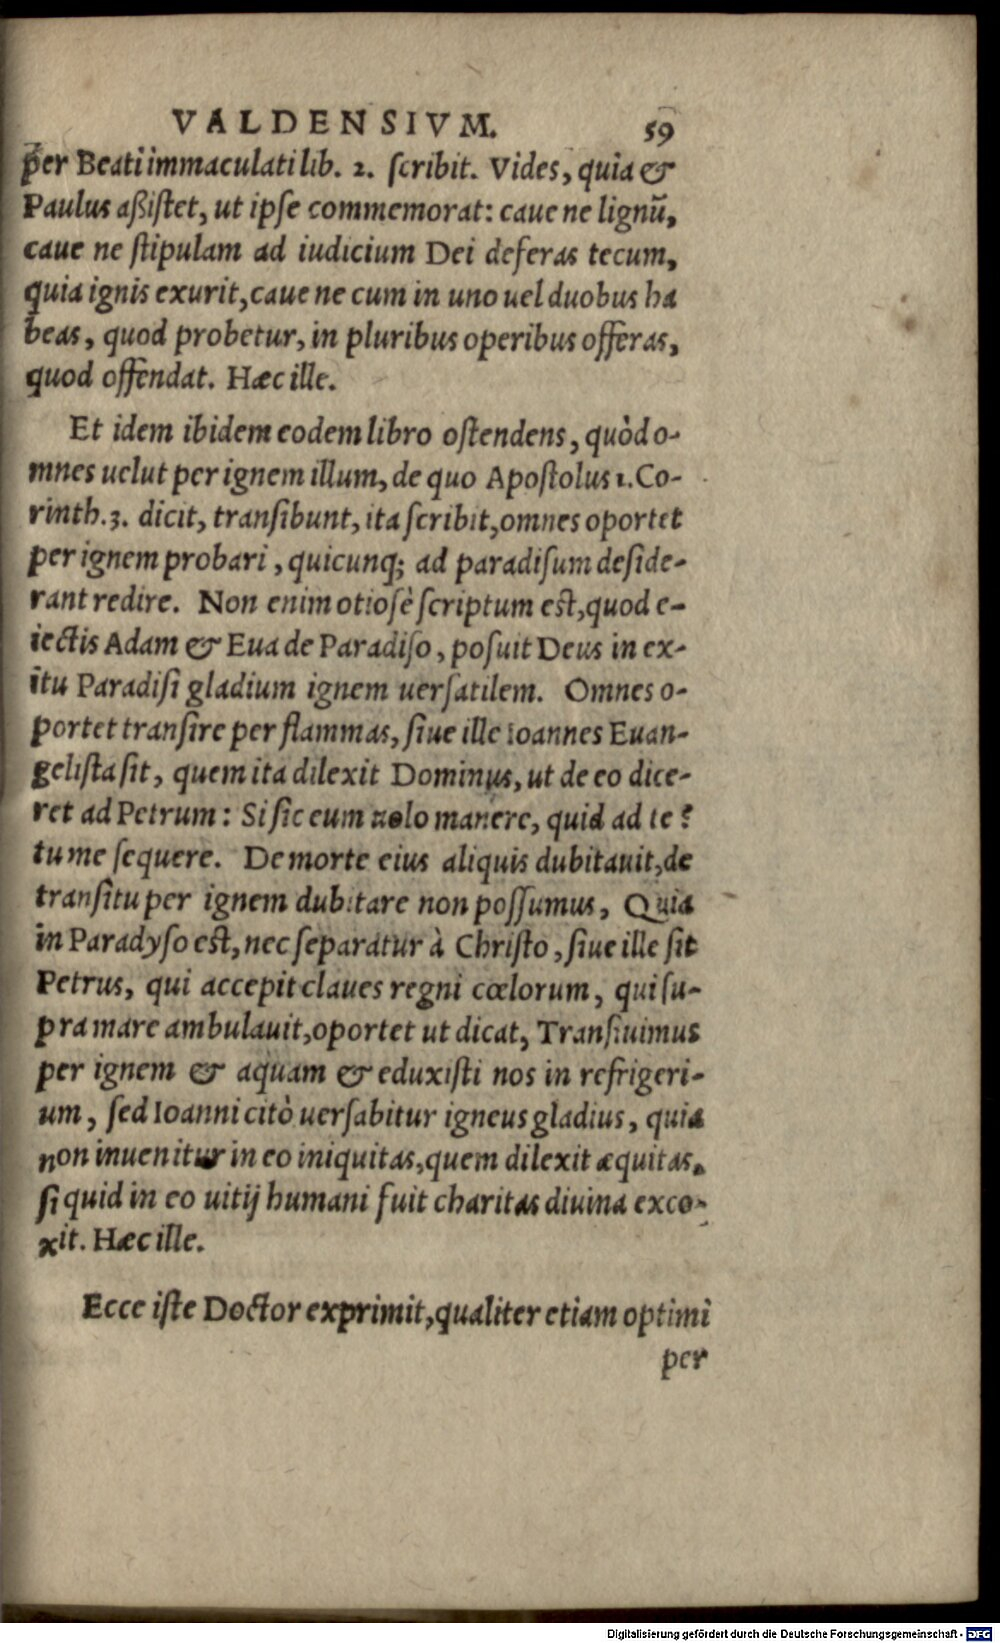 VALDENSIVM. 59
per Beati immaculati lib. 2. ſcribit. Vides, quia &
Paulus aßiſtet, ut ipſe commemorat: caue ne lignũ,
caue ne ſtipulam ad iudicium Dei deferas tecum,
quia ignis exurit, caue ne cum in uno uel duobus ha
beas, quod probetur, in pluribus operibus offeras,
quod offendat. Hæc ille.
Et idem ibidem eodem libro oſtendens, quòd o-
mnes uelut per ignem illum, de quo Apoſtolus 1. Co-
rinth. 3. dicit, tranſibunt, ita ſcribit, omnes oportet
per ignem probari, quicunq; ad paradiſum deſide-
rant redire. Non enim otiosè ſcriptum eſt, quod e-
iectis Adam & Eua de Paradiſo, poſuit Deus in ex-
itu Paradiſi gladium ignem uerſatilem. Omnes o-
portet tranſire per flammas, ſiue ille Ioannes Euan-
geliſta ſit, quem ita dilexit Dominus, ut de eo dice-
ret ad Petrum: Si ſic eum uolo manere, quid ad te?
tu me ſequere. De morte eius aliquis dubitauit, de
tranſitu per ignem dubitare non poſſumus, Quia
in Paradyſo eſt, nec ſeparatur à Chriſto, ſiue ille ſit
Petrus, qui accepit claues regni cœlorum, qui ſu-
pra mare ambulauit, oportet ut dicat, Tranſiuimus
per ignem & aquam & eduxiſti nos in refrigeri-
um, ſed Ioanni citò uerſabitur igneus gladius, quia
non inuenitur in eo iniquitas, quem dilexit æquitas.
ſi quid in eo uitij humani fuit charitas diuina exco-
xit. Hæc ille.
Ecce iſte Doctor exprimit, qualiter etiam optimi
per
Digitalisierung gefördert durch die Deutsche Forschungsgemeinschaft - DFG